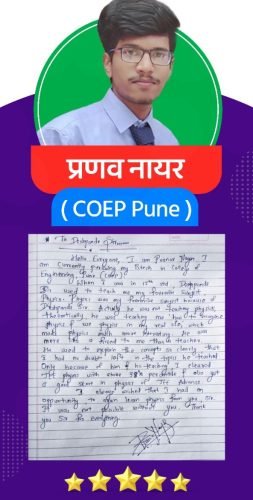 प्रणव नायर
( COEP Pune )
To Deshpande
Hello Everyone, I am Pranav Nayar. I
am currently pursuing my Btech in College of
Engineering, Pune (COEP).
When I was in 12th std Deshpande
Sir used to teach me my favourite subject
Physics. Physics was my favourite subject because of
Deshpande Sir. Actually he was not teaching physics
theoretically, he was teaching me how to imagine
physics & use physics in my real life, which
makes physics much more interesting. He was
more like a friend to me than a teacher.
He used to explain the concepts so clearly that
I had no doubt left in the topics he teached.
Only because of him & his teaching I cleared
JEE physics with percentile & also got
a good score in physics of JEE Advance
I always wished that I had an
opportunity to learn physics from you, Sir.
It was not possible without you. Thank
you Sir for everything.